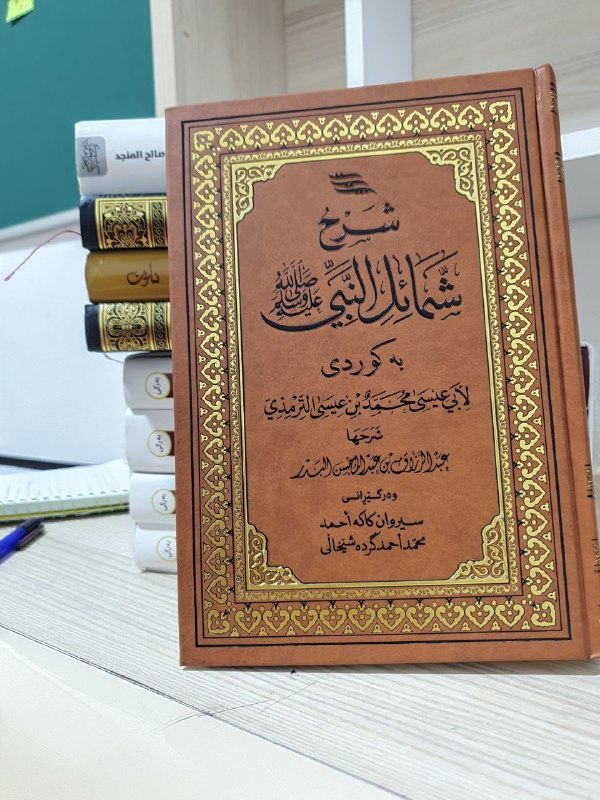 شَرْح
شَمَائِلِ النَّبِيِّ ﷺ
بە کوردی
لِأَبِي عِيسَى مُحَمَّدْ بْنِ عِيسَى التِّرْمِذِيّ
شَرَحَهَا
عَبْدُ الرَّزَّاقِ بْنُ عَبْدِ الْمُحْسِنِ الْبَدْر
وەرگێڕانی
سیروان کاکە أحمد
محمّد أحمد گردە شێخاڵی
صالح المنجد